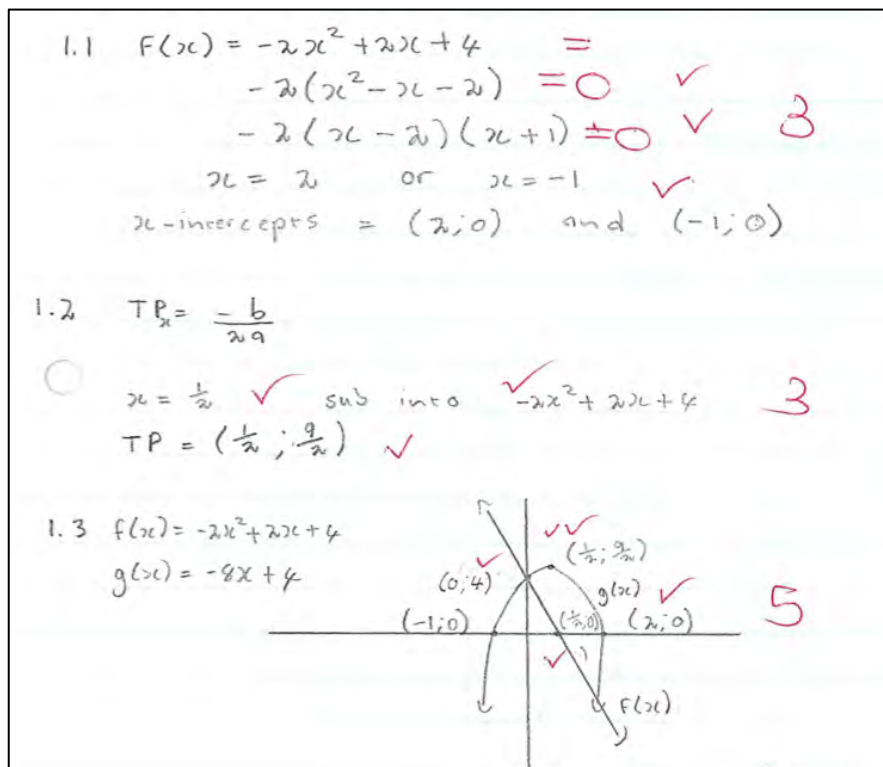 1.1 F(x) = -2x² + 2x + 4 =
-2(x² - x - 2) = 0 ✓
-2(x - 2)(x + 1) = 0 ✓ 3
x = 2 or x = -1 ✓
x-intercepts = (2;0) and (-1;0)
1.2 TPₓ = -b/2a
x = 1/2 ✓ sub into ✓ -2x² + 2x + 4 3
TP = (1/2 ; 9/2) ✓
1.3 f(x) = -2x² + 2x + 4
g(x) = -8x + 4
✓✓
(1/2 ; 9/2)
(0;4) ✓
g(x) ✓
(-1;0) (1/2;0) (2;0) 5
✓
F(x)